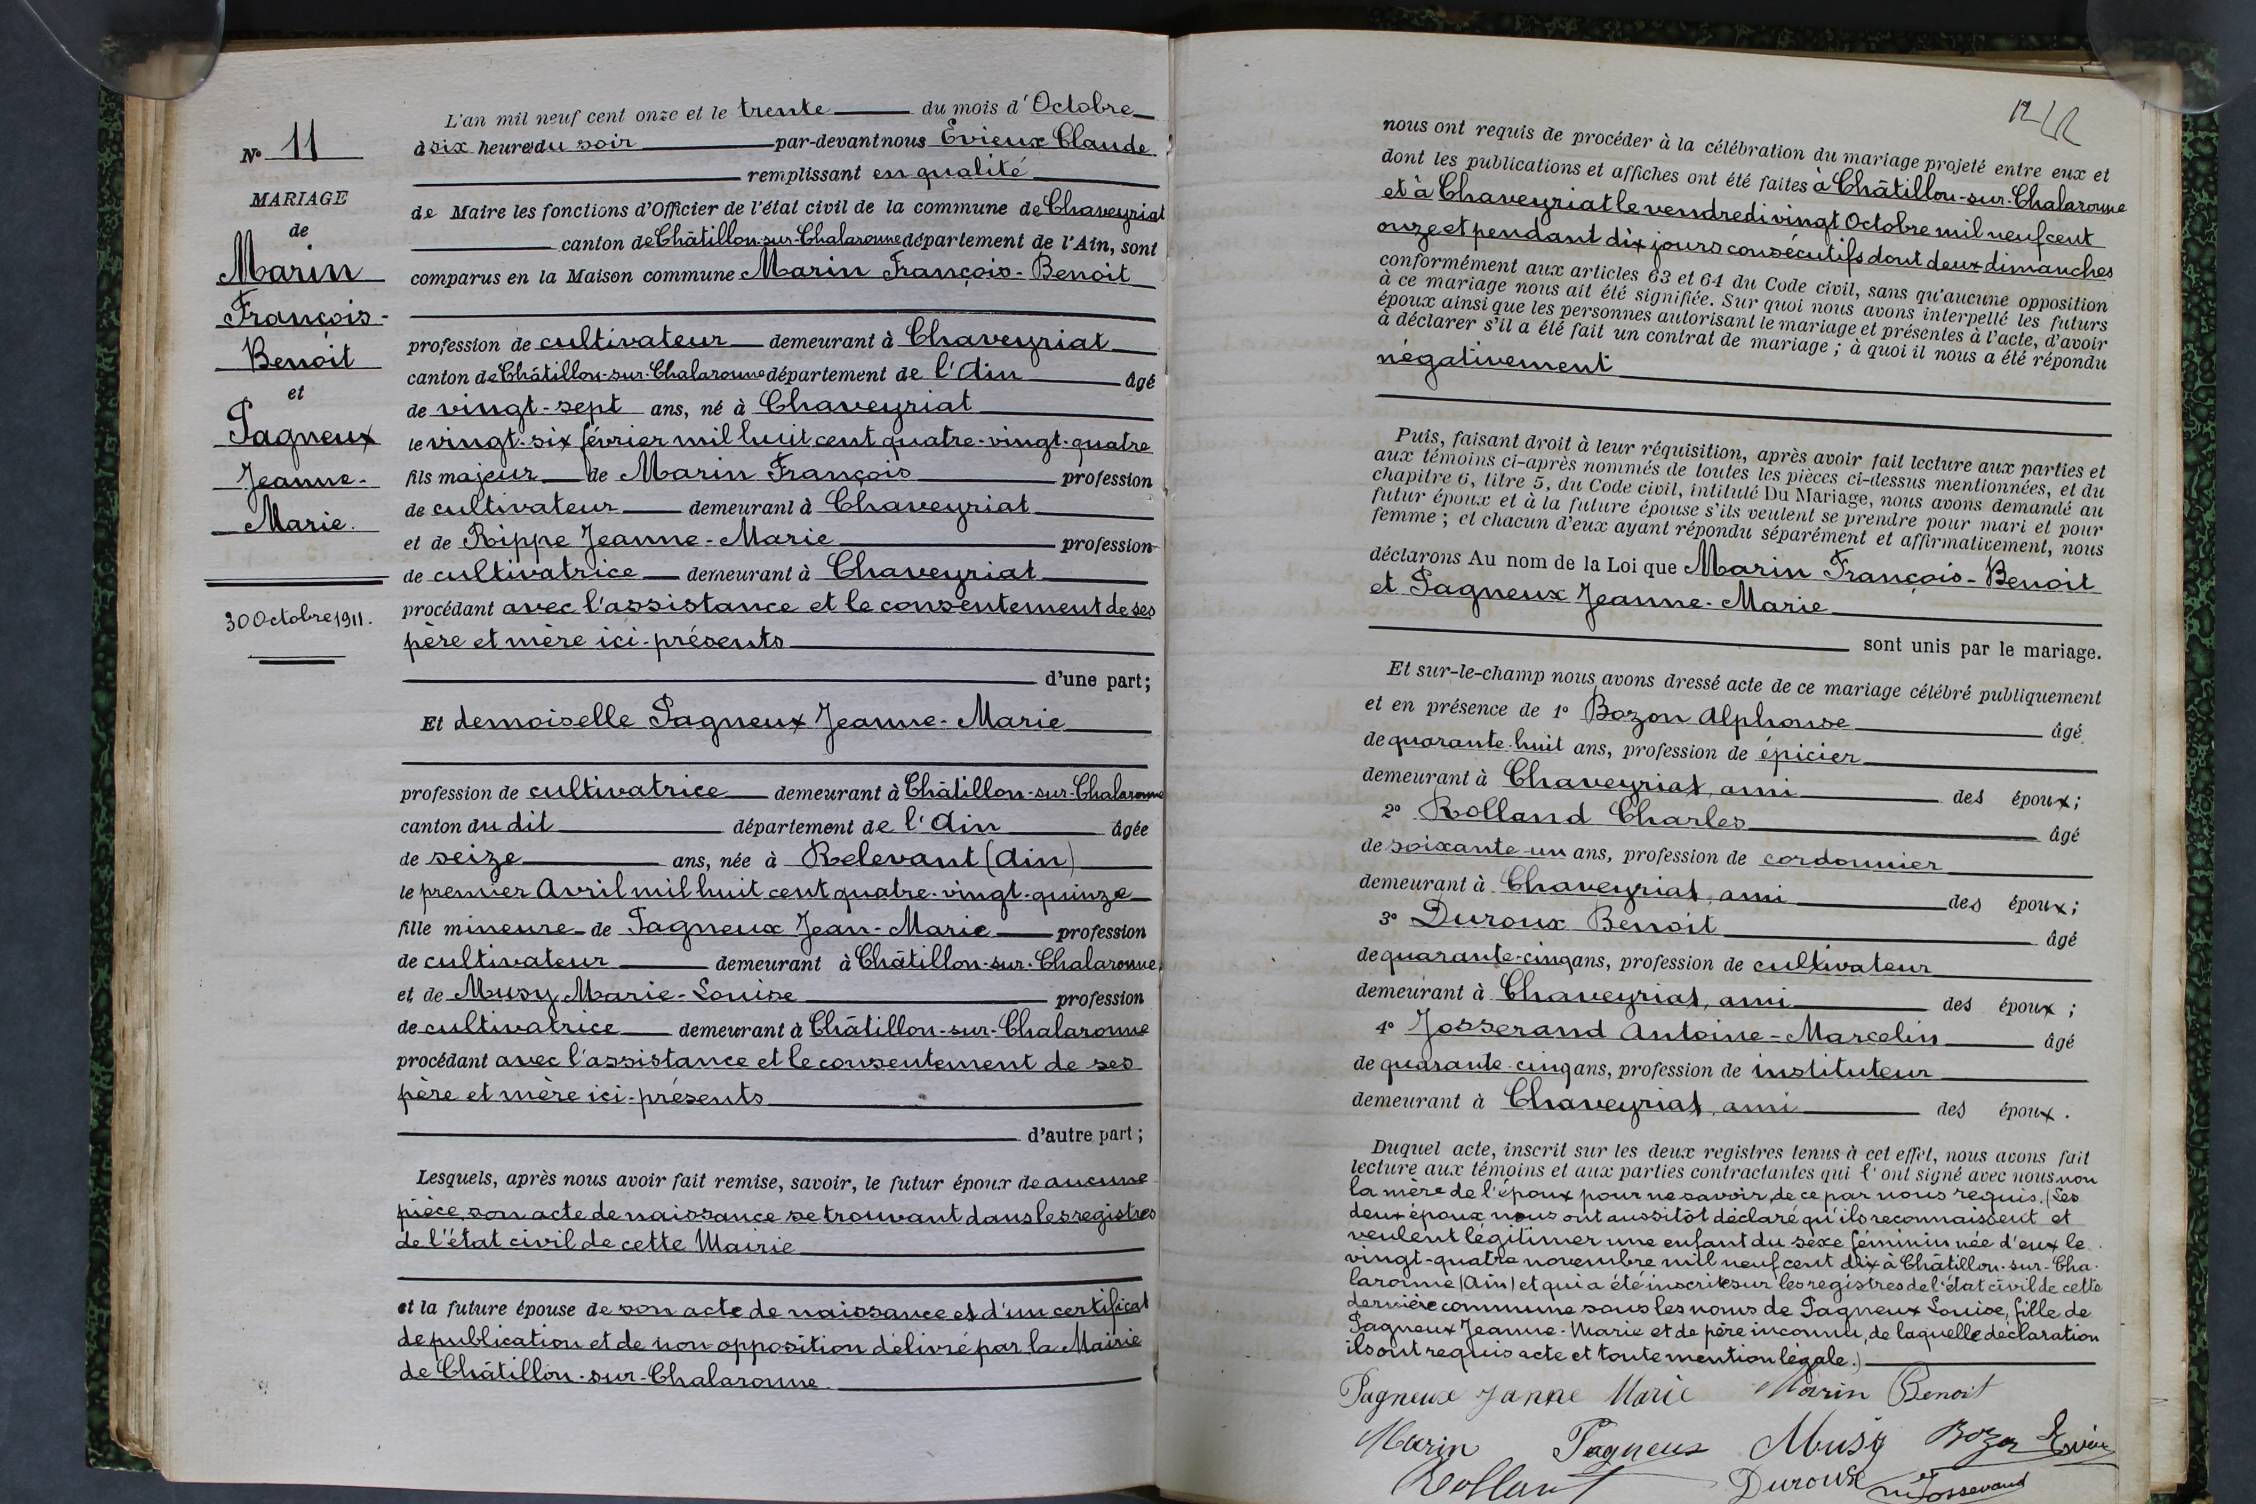 N° 11
MARIAGE
de
Marin
François-
Benoit
et
Pagneux
Jeanne-
Marie.
30 Octobre 1911.
L'an mil neuf cent onze et le trente du mois d'Octobre
à six heures du soir par-devant nous Evieux Claude
remplissant en qualité
de Maire les fonctions d'Officier de l'état civil de la commune de Chaveyriat
canton de Châtillon-sur-Chalaronne département de l'Ain, sont
comparus en la Maison commune Marin François-Benoit
profession de cultivateur demeurant à Chaveyriat
canton de Châtillon-sur-Chalaronne département de l'Ain âgé
de vingt-sept ans, né à Chaveyriat
le vingt-six février mil huit cent quatre-vingt-quatre
fils majeur de Marin François profession
de cultivateur demeurant à Chaveyriat
et de Rippe Jeanne-Marie profession
de cultivatrice demeurant à Chaveyriat
procédant avec l'assistance et le consentement de ses
père et mère ici-présents
d'une part;
Et demoiselle Pagneux Jeanne-Marie
profession de cultivatrice demeurant à Châtillon-sur-Chalaronne
canton du dit département de l'Ain âgée
de seize ans, née à Relevant (Ain)
le premier Avril mil huit cent quatre-vingt-quinze
fille mineure de Pagneux Jean-Marie profession
de cultivateur demeurant à Châtillon-sur-Chalaronne,
et de Musy Marie-Louise profession
de cultivatrice demeurant à Châtillon-sur-Chalaronne
procédant avec l'assistance et le consentement de ses
père et mère ici-présents
d'autre part;
Lesquels, après nous avoir fait remise, savoir, le futur époux de aucune
pièce, son acte de naissance se trouvant dans les registres
de l'état civil de cette Mairie
et la future épouse de son acte de naissance et d'un certificat
de publication et de non opposition délivré par la Mairie
de Châtillon-sur-Chalaronne
nous ont requis de procéder à la célébration du mariage projeté entre eux et
dont les publications et affiches ont été faites à Châtillon-sur-Chalaronne
et à Chaveyriat le vendredi vingt Octobre mil neuf cent
onze et pendant dix jours consécutifs dont deux dimanches
conformément aux articles 63 et 64 du Code civil, sans qu'aucune opposition
à ce mariage nous ait été signifiée. Sur quoi nous avons interpellé les futurs
époux ainsi que les personnes autorisant le mariage et présentes à l'acte, d'avoir
à déclarer s'il a été fait un contrat de mariage; à quoi il nous a été répondu
négativement
Puis, faisant droit à leur réquisition, après avoir fait lecture aux parties et
aux témoins ci-après nommés de toutes les pièces ci-dessus mentionnées, et du
chapitre 6, titre 5, du Code civil, intitulé Du Mariage, nous avons demandé au
futur époux et à la future épouse s'ils veulent se prendre pour mari et pour
femme; et chacun d'eux ayant répondu séparément et affirmativement, nous
déclarons Au nom de la Loi que Marin François-Benoit
et Pagneux Jeanne-Marie
sont unis par le mariage.
Et sur-le-champ nous avons dressé acte de ce mariage célébré publiquement
et en présence de 1° Bozon Alphonse âgé
de quarante-huit ans, profession de épicier
demeurant à Chaveyriat, ami des époux;
2° Rolland Charles âgé
de soixante-un ans, profession de cordonnier
demeurant à Chaveyriat, ami des époux;
3° Duroux Benoit âgé
de quarante-cinq ans, profession de cultivateur
demeurant à Chaveyriat, ami des époux;
4° Josserand Antoine-Marcelin âgé
de quarante-cinq ans, profession de instituteur
demeurant à Chaveyriat, ami des époux.
Duquel acte, inscrit sur les deux registres tenus à cet effet, nous avons fait
lecture aux témoins et aux parties contractantes qui l'ont signé avec nous, non
la mère de l'époux pour ne savoir, de ce par nous requis. (Les
deux époux nous ont aussitôt déclaré qu'ils reconnaissent et
veulent légitimer une enfant du sexe féminin née d'eux le
vingt-quatre novembre mil neuf cent dix à Châtillon-sur-Cha-
laronne (Ain) et qui a été inscrite sur les registres de l'état civil de cette
dernière commune sous les noms de Pagneux Louise, fille de
Pagneux Jeanne-Marie et de père inconnu, de laquelle déclaration
ils ont requis acte et toute mention légale.)
Pagneux Janne Marie Marin Benoit
Marin Pagneux Musy Bozon Evieux
Rolland Duroux Josserand